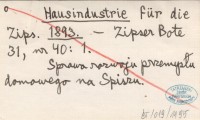 Hausindustrie für die
Zips. 1893. – Zipser Bote
31, nr 40: 1.
Sprawa rozwoju przemysłu
domowego na Spiszu.